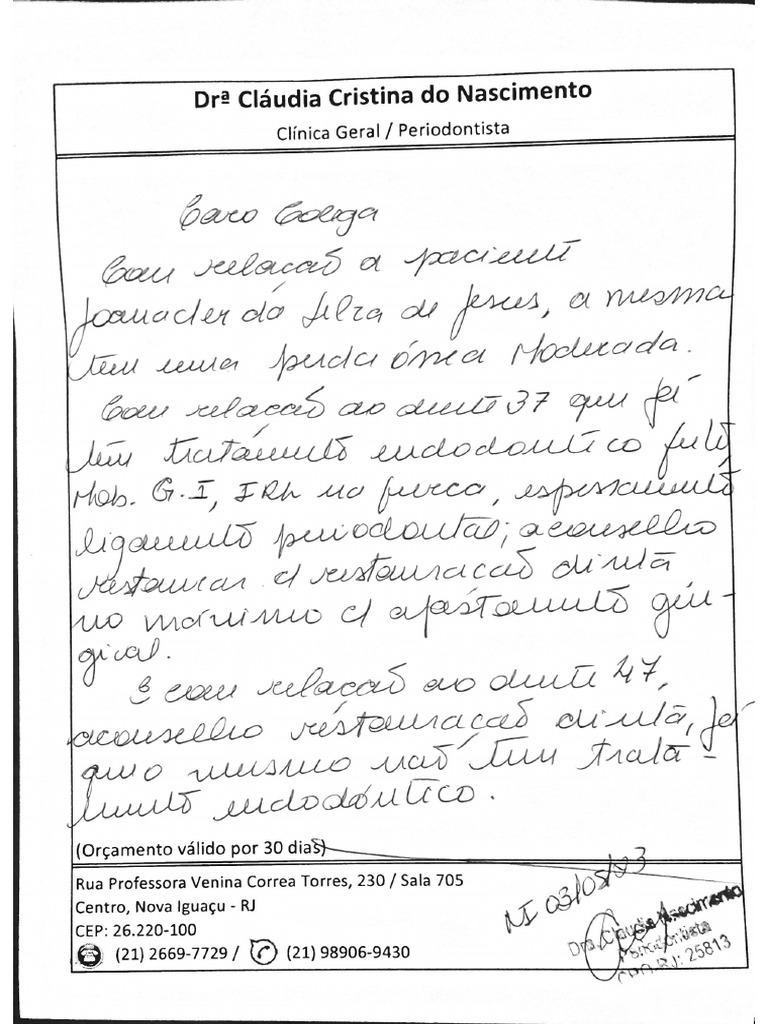 Drª Cláudia Cristina do Nascimento
Clínica Geral / Periodontista
Caro Colega
Com relação a paciente
da Silva de Jesus, a mesma
tem uma perda óssea Moderada.
Com relação ao dente 37 que já
tem tratamento endodontico feito,
Mob. G.I, na furca, espessamento
ligamento periodontal; aconselho
restaurar c/ restauração direta
no máximo c/ afastamento gen-
gival.
E com relação ao dente 47,
aconselho restauração direta, já
que o mesmo não tem trata-
mento endodôntico.
(Orçamento válido por 30 dias)
Rua Professora Venina Correa Torres, 230 / Sala 705
Centro, Nova Iguaçu - RJ
CEP: 26.220-100
(21) 2669-7729 / (21) 98906-9430
NI 03/05/23
Dra. Cláudia Nascimento
Periodontista
CRO-RJ: 25813